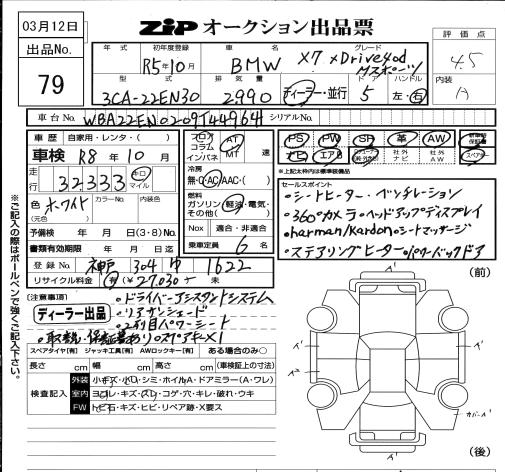 03月12日
ZIP オークション出品票
出品No.
79
評価点
4.5
内装
A
年式 初年度登録 車名 グレード
R5年10月 BMW X7 xDrive40d
Mスポーツ
型式 排気量 ドア ハンドル
3CA-22EN30 2,990 ディーラー・並行 5 左・右
車台No. WBA22EN0209T44964 シリアルNo.
車歴 自家用・レンタ・( )
車検 R8年10月
走行 32333 キロ マイル
色 ホワイト (元色) カラーNo. 内装色
予備検 年 月 日(3・8)No.
書類有効期限 年 月 日迄
登録No. 神戸 304 1622
リサイクル料金 有(¥27,030-) 未
フロア コラム インパネ
AT MT 速
冷房
無・AC・AAC・( )
燃料
ガソリン・軽油・電気・その他( )
Nox 適合・非適合
乗車定員 6 名
PS PW SR 革 AW 新車時保証書
ナビ エアB 社外ナビ 社外AW スペアキー
※上記太枠内は標準装備品
セールスポイント
・シートヒーター・ベンチレーション
・360°カメラ・ヘッドアップディスプレイ
・harman/kardon・シートマッサージ
・ステアリングヒーター・パワーバックドア
[注意事項]
・ドライバーアシスタントシステム
ディーラー出品
・リアサンシェード
・2列目パワーシート
・取説・保証書あり・スペアキー×1
スペアタイヤ[有] ジャッキ工具[有] AWロックキー[有] ある場合のみ○
長さ cm 幅 cm 高さ cm (車検証上の寸法)
検査記入
外装 小キズ・凹・シミ・ホイルA・ドアミラー(A・ワレ)
室内 ヨゴレ・キズ・スレ・コゲ・穴・キレ・破れ・ウキ
FW トビ石・キズ・ヒビ・リペア跡・X要ス
※ご記入の際はボールペンで強くご記入下さい。
(前)
(後)
A'
A'
A'
A'
A2
A'
カバーA'
A'